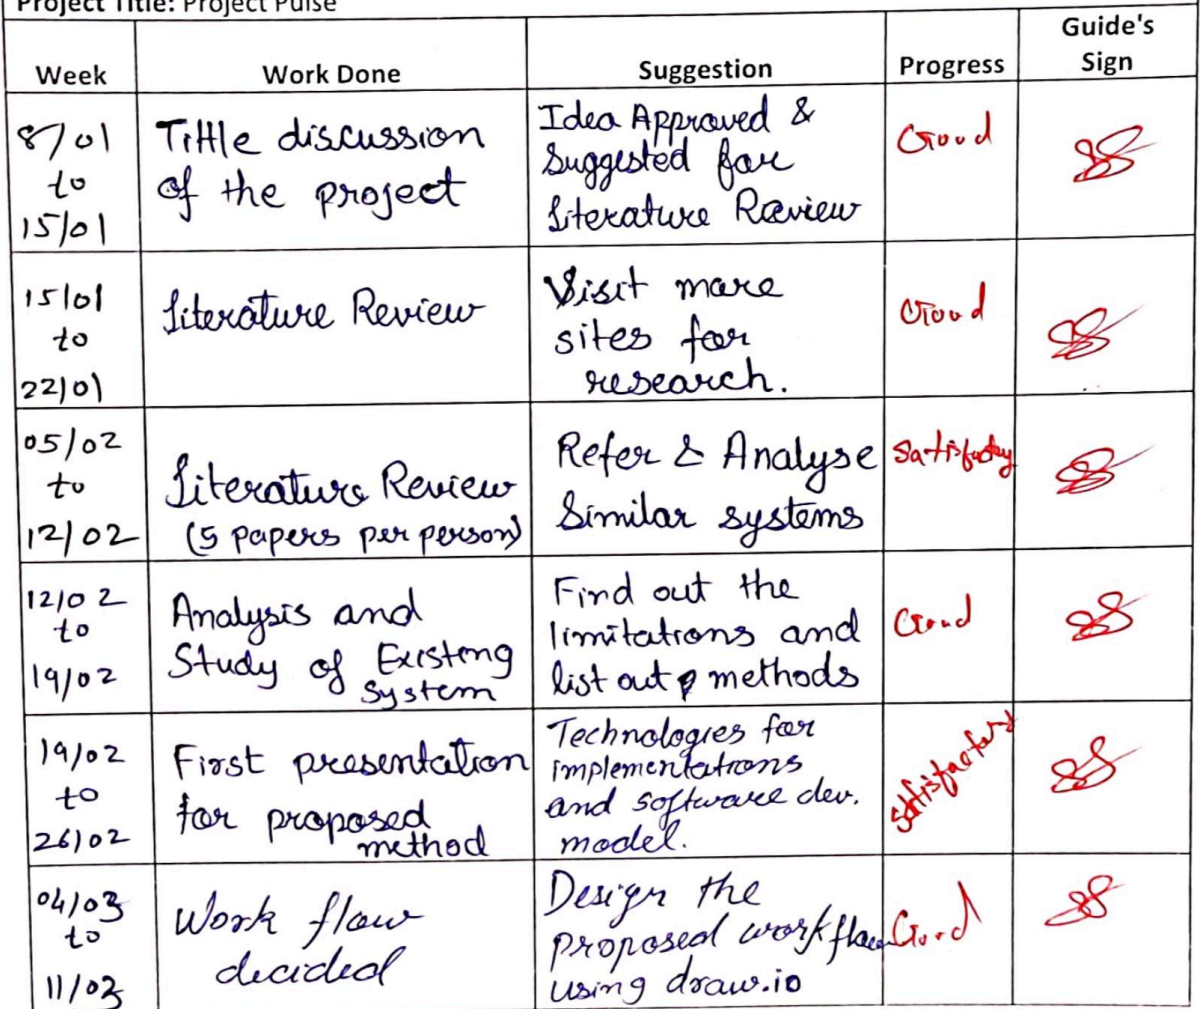 Project Title: Project Pulse
Guide's
Week Work Done Suggestion Progress Sign
8/01
to
15/01
Tittle discussion
of the project
Idea Approved &
Suggested for
Literature Review
Good
15/01
to
22/01
Literature Review
Visit more
sites for
research.
Good
05/02
to
12/02
Literature Review
(5 papers per person)
Refer & Analyse
Similar systems
Satisfactory
12/02
to
19/02
Analysis and
Study of Existing
System
Find out the
limitations and
list out methods
Good
19/02
to
26/02
First presentation
for proposed
method
Technologies for
implementations
and software dev.
model.
Satisfactory
04/03
to
11/03
Work flow
decided
Design the
proposed workflow
using draw.io
Good